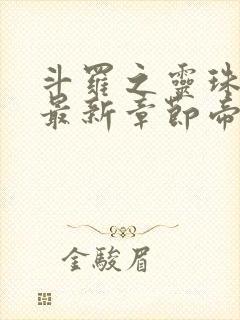 斗羅之靈珠
最新章節帝
金駿眉